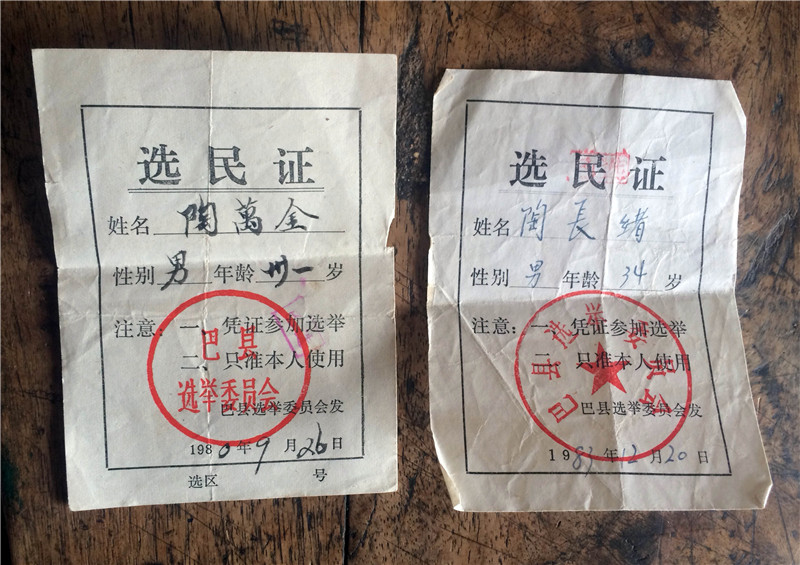 选民证
姓名 陶萬全
性别 男 年龄 卅一 岁
注意：一、凭证参加选举
二、只准本人使用
巴县选举委员会发
1980年9月26日
选区 号
巴县
选举委员会
选民证
姓名 陶長绪
性别 男 年龄 34 岁
注意：一、凭证参加选举
二、只准本人使用
巴县选举委员会发
1983年12月20日
巴县选举委员会